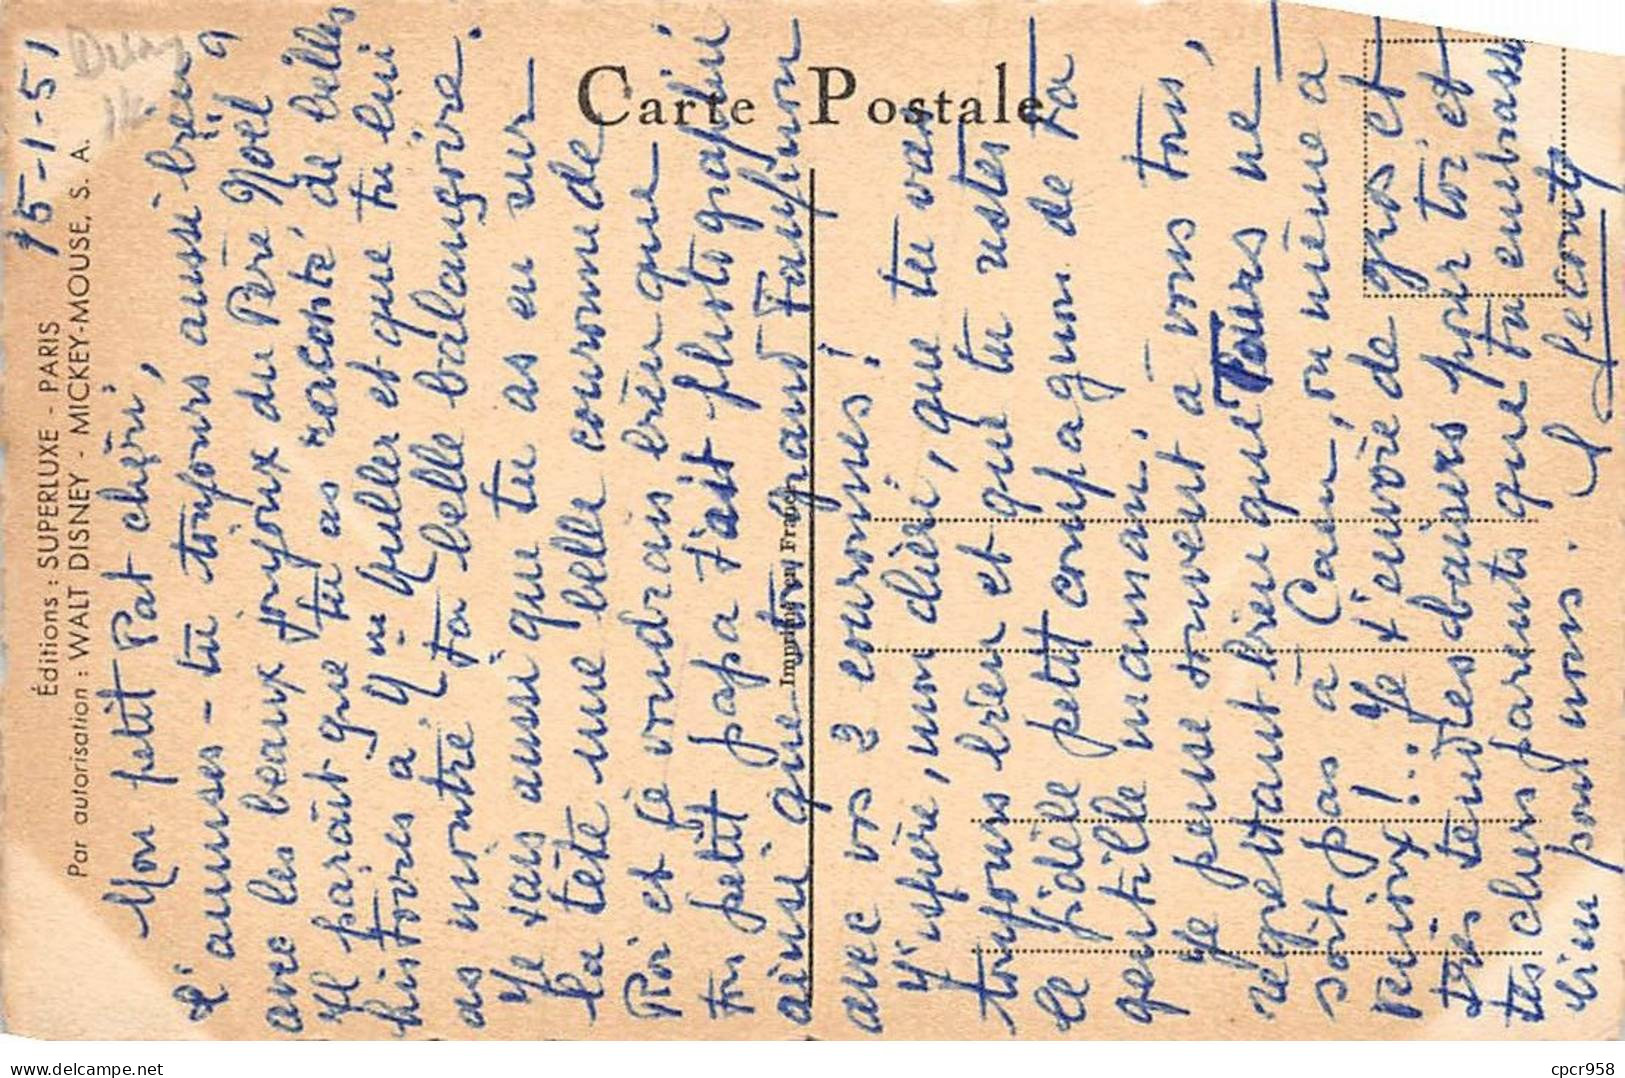 Carte Postale
Éditions : SUPERLUXE - PARIS
Par autorisation : WALT DISNEY - MICKEY-MOUSE, S. A.
Imprimé en France
15-1-51
Mon petit Pat chéri,
t'amuses - tu toujours aussi bien
avec les beaux joujoux du Père Noël ?
Il paraît que tu as raconté de belles
histoires à Melle Muller et que tu lui
as montré ta belle balançoire.
Je sais aussi que tu as eu sur
la tête une belle couronne de
Roi et je voudrais bien que
ton petit papa t'ait photographié
ainsi que ton grand Fanfinon
avec vos 2 couronnes !
J'espère, mon chéri, que tu vas
toujours bien et que tu restes
le fidèle petit compagnon de ta
gentille maman.
Je pense souvent à vous tous,
regrettant bien que Tours ne
soit pas à Caen, ou même à
Périoux !.. Je t'envoie de gros et
très tendres baisers pour toi et
tes chers parents que tu embrasse
bien pour nous.
S Lecomte
cpcr958